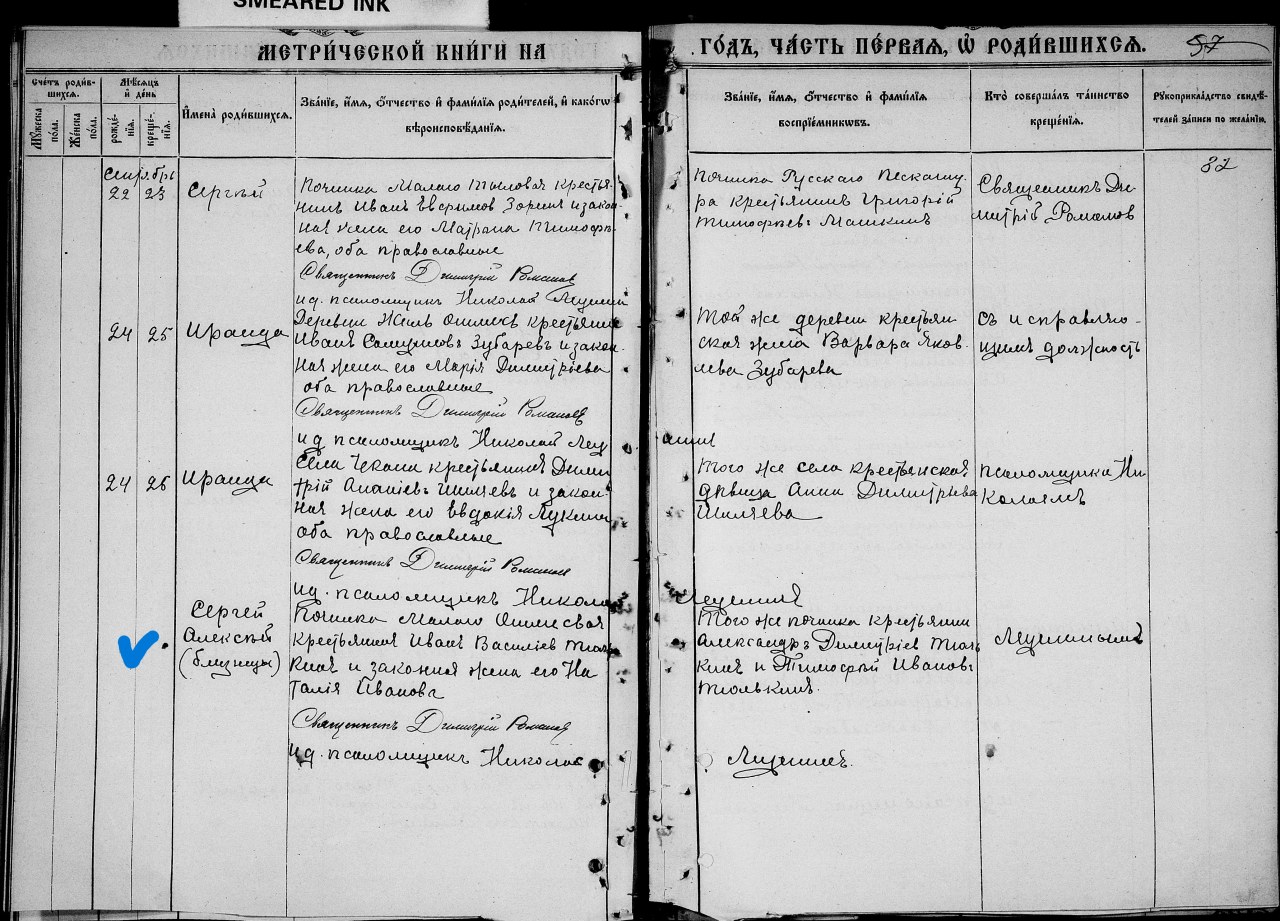 SMEARED INK
МЕТРИ́ЧЕСКОЙ КНИ́ГИ НА
ГО́ДЪ, ЧА́СТЬ ПЕ́РВАЯ, Ѡ РОДИ́ВШИХСЯ.
57
Сче́тъ роди́в-
шихся.
Му́жеска
по́ла.
Же́нска
по́ла.
Мѣ́сяцъ
и҆ де́нь
рожде́-
нїѧ.
креще́-
нїѧ.
И҆мена̀ роди́вшихся.
Зва́нїе, и҆́мя, ѻ҆́тчество и҆ фами́лїя роди́телей, и҆ како́гѡ
вѣроисповѣ́данїя.
Зва́нїе, и҆́мя, ѻ҆́тчество и҆ фами́лїя
воспрїе́мниковъ.
Кто̀ соверша́лъ та́инство
креще́нїя.
Рꙋкоприкла́дство свидѣ́-
телей за́писи по жела́нїю.
82
Сентябрь
22 23
Сергѣй
Починка Малаго Тыловая крестья-
нинъ Иванъ Евфимовъ Зоринъ и закон-
ная жена его Матрона Тимофѣ-
ева, оба православные
Священникъ Димитрій Романов
и.д. псаломщикъ Николай
Починка Русскаго
крестьянинъ Григорій
Тимофѣевъ Машкинъ
Священникъ Ди-
митрій Романов
24 25
Ираида
Деревни крестьянин
Иванъ Зубаревъ и закон-
ная жена его Марія Димитріева
оба православные
Священникъ Димитрій Романов
и.д. псаломщикъ Николай
Той же деревни крестьян-
ская жена Варвара Яков-
лева Зубарева
съ исправляю-
щимъ должность
24 26
Ираида
Села крестьянинъ Дими-
трій Ананіевъ Шиляевъ и закон-
ная жена его Евдокія Лукина
оба православные
Священникъ Димитрій Романов
и.д. псаломщикъ Николай
Того же села крестьянская
дѣвица Анна Димитріева
Шиляева
псаломщика Ни-
колаемъ
Сергей
Алексѣй
(близнецы)
Починка Малаго
крестьянинъ Иванъ Василіев Тюль-
кинъ и законная жена его На-
талія Иванова
Священникъ Димитрій Романов
и.д. псаломщикъ Николай
Того же починка крестьяни
Александръ Димитріев Тюль-
кинъ и Тимофей Ивановъ
Тюлькинъ.